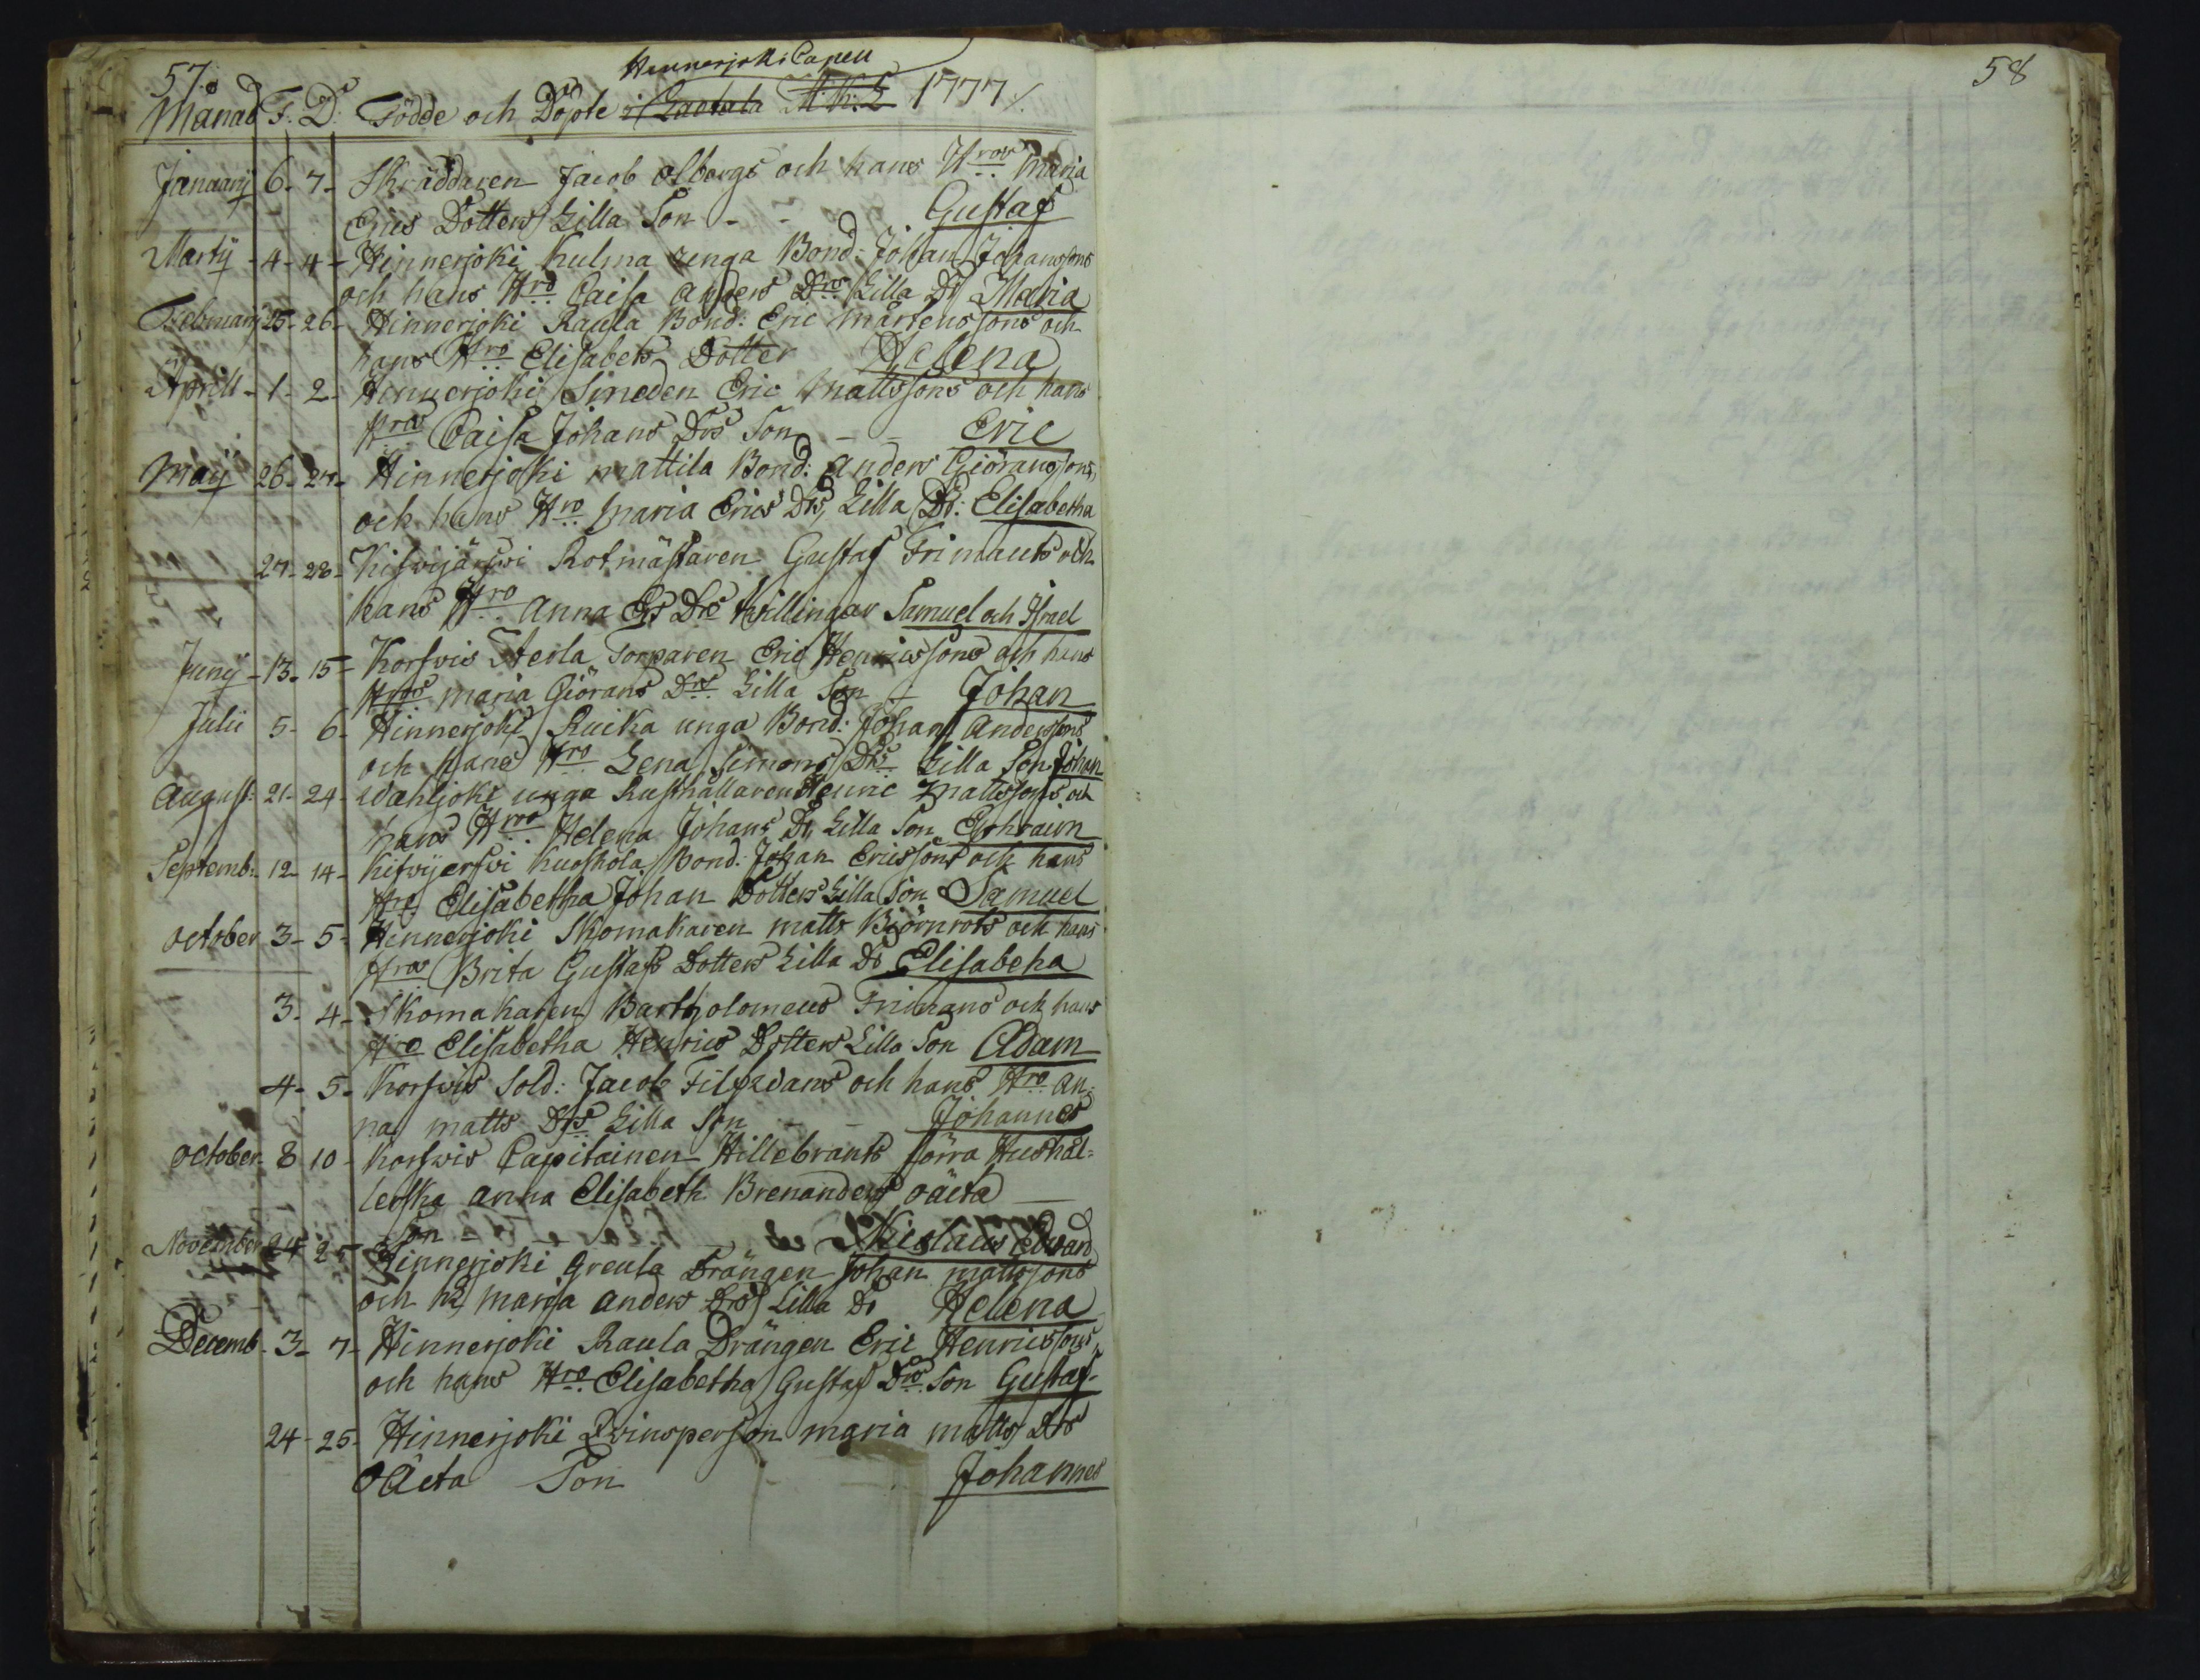 57.
58
Hinnerjoki Capell
Månad F. D. Födde och Döpte i 1777
Januarij 6. 7. Skräddaren Jacob Olbergs och hans Hrov Maria
Eries Dotters Lilla Son - - Gustaf
Martij - 4 - 4 - Hinnerjoki Kulma unga Bond: Johan Johanssons
och hans Hro Caisa Anders Drs Lilla Dr Maria
Februarij 25 - 26 - Hinnerjoki Raula Bond: Eric Mårtenssons och
hans Hro Elisabets Dotter Helena
Aprill - 1 - 2 - Hinnerjoki Smeden Eric Mattssons och hans
Hros Caisa Johans Drs Son - - Eric
Maij 26 - 27 - Hinnerjoki Mattila Bond: Anders Giöranssons,
och hans Hro Maria Erics Drs, Lilla Dr: Elisabetha
27 - 28 - Rotmästaren Gustaf Frimants och
hans Hro Anna Ers Drs twillingar Samuel och Israel
Junij - 13 - 15 - Korfwis Torparen Eric Henricssons och hans
Hros Maria Giörans Drs Lilla Son - Johan
Julii 5 - 6 - Hinnerjoki Ruika unga Bond: Johan Anderssons
och hans Hro Lena Simons Drs Lilla Son Johan
August: 21 - 24 - Wahljoki unga Rusthållaren Henric Mattssons och
hans Hros Helena Johans Dr Lilla Son Ephraim
Septemb: 12 - 14 - Kifwijerfwi Bond: Johan Ericssons och hans
Hro Elisabetha Johan Dotters Lilla Son Samuel
October 3 - 5 - Hinnerjoki Skomakaren Matts Björnrots och hans
Hros Brita Gustafs Dotters Lilla Dr Elisabeha
3 - 4 - Skomakaren Bartholomeus Frimans och hans
Hro Elisabetha Henrics Dotters Lilla Son Adam
4 - 5 - Korfwis Sold: Jacob och hans Hro An-
na Matts Drs Lilla Son - - Johannes
October - 8 10 - Korfwis Capitainen Hillebrants förra Hushål-
lerska Anna Elisabeth Brenanders oäcta
Son - - - Nicolaus Edvard
November 24 25 - Hinnerjoki Greula Drängen Johan Mattssons
och hs Maria Anders Drs Lilla Dr Helena
Decemb - 3 - 7 - Hinnerjoki Raula Drängen Eric Henricssons,
och hans Hro Elisabetha Gustaf Drs Son Gustaf
24 - 25 - Hinnerjoki Qvinsperson Maria Matts Drs
oäcta Son Johannes